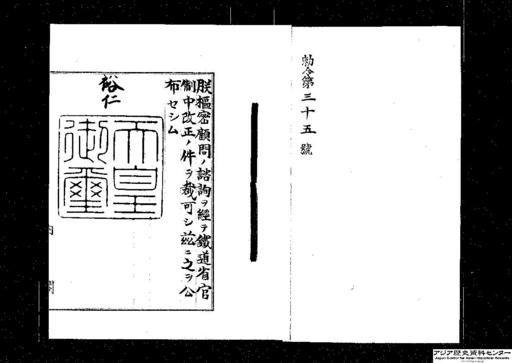 勅令第三十五號
朕樞密顧問ノ諮詢ヲ經テ鐵道省官
制中改正ノ件ヲ裁可シ茲ニ之ヲ公
布セシム
裕仁
天皇
御璽
内閣
アジア歴史資料センター
Japan Center for Asian Historical Records